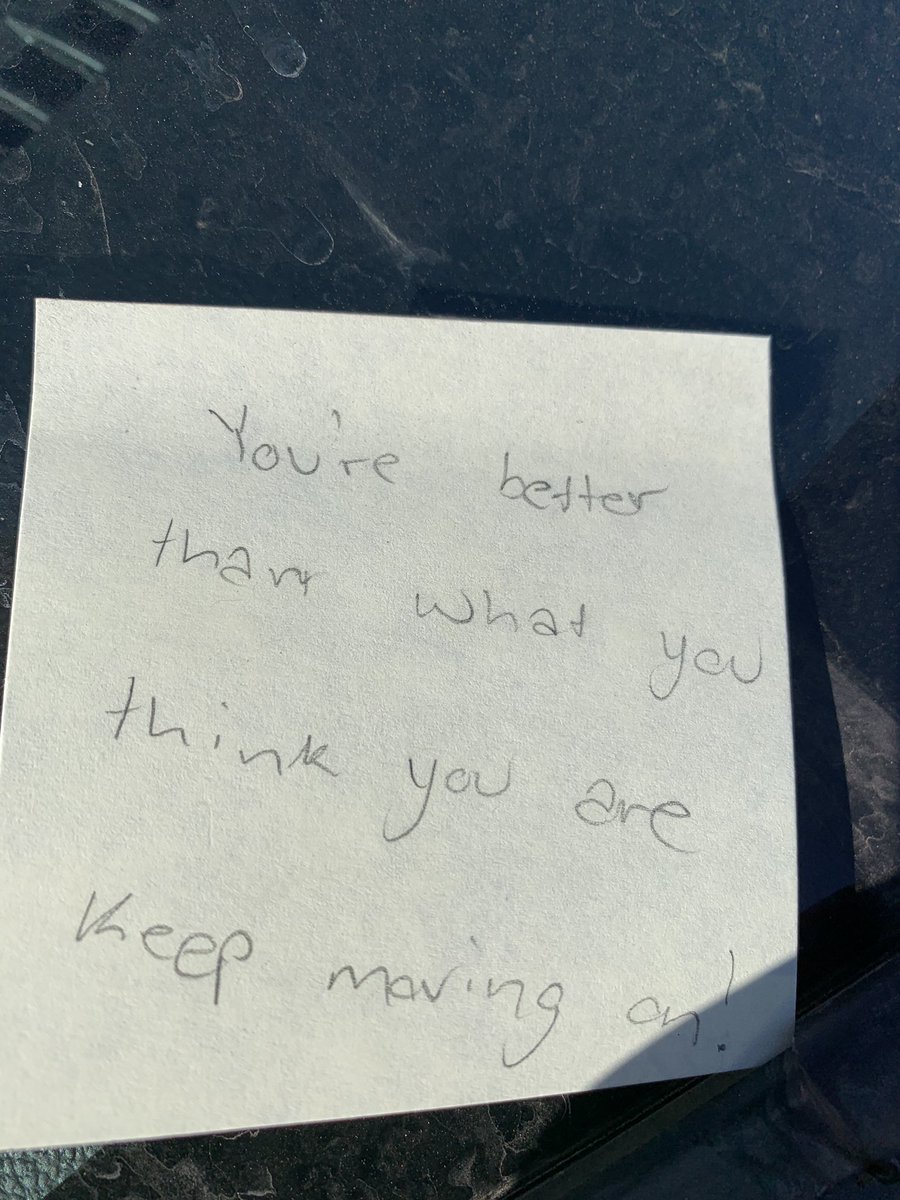 You're better
than what you
think you are
Keep moving on!